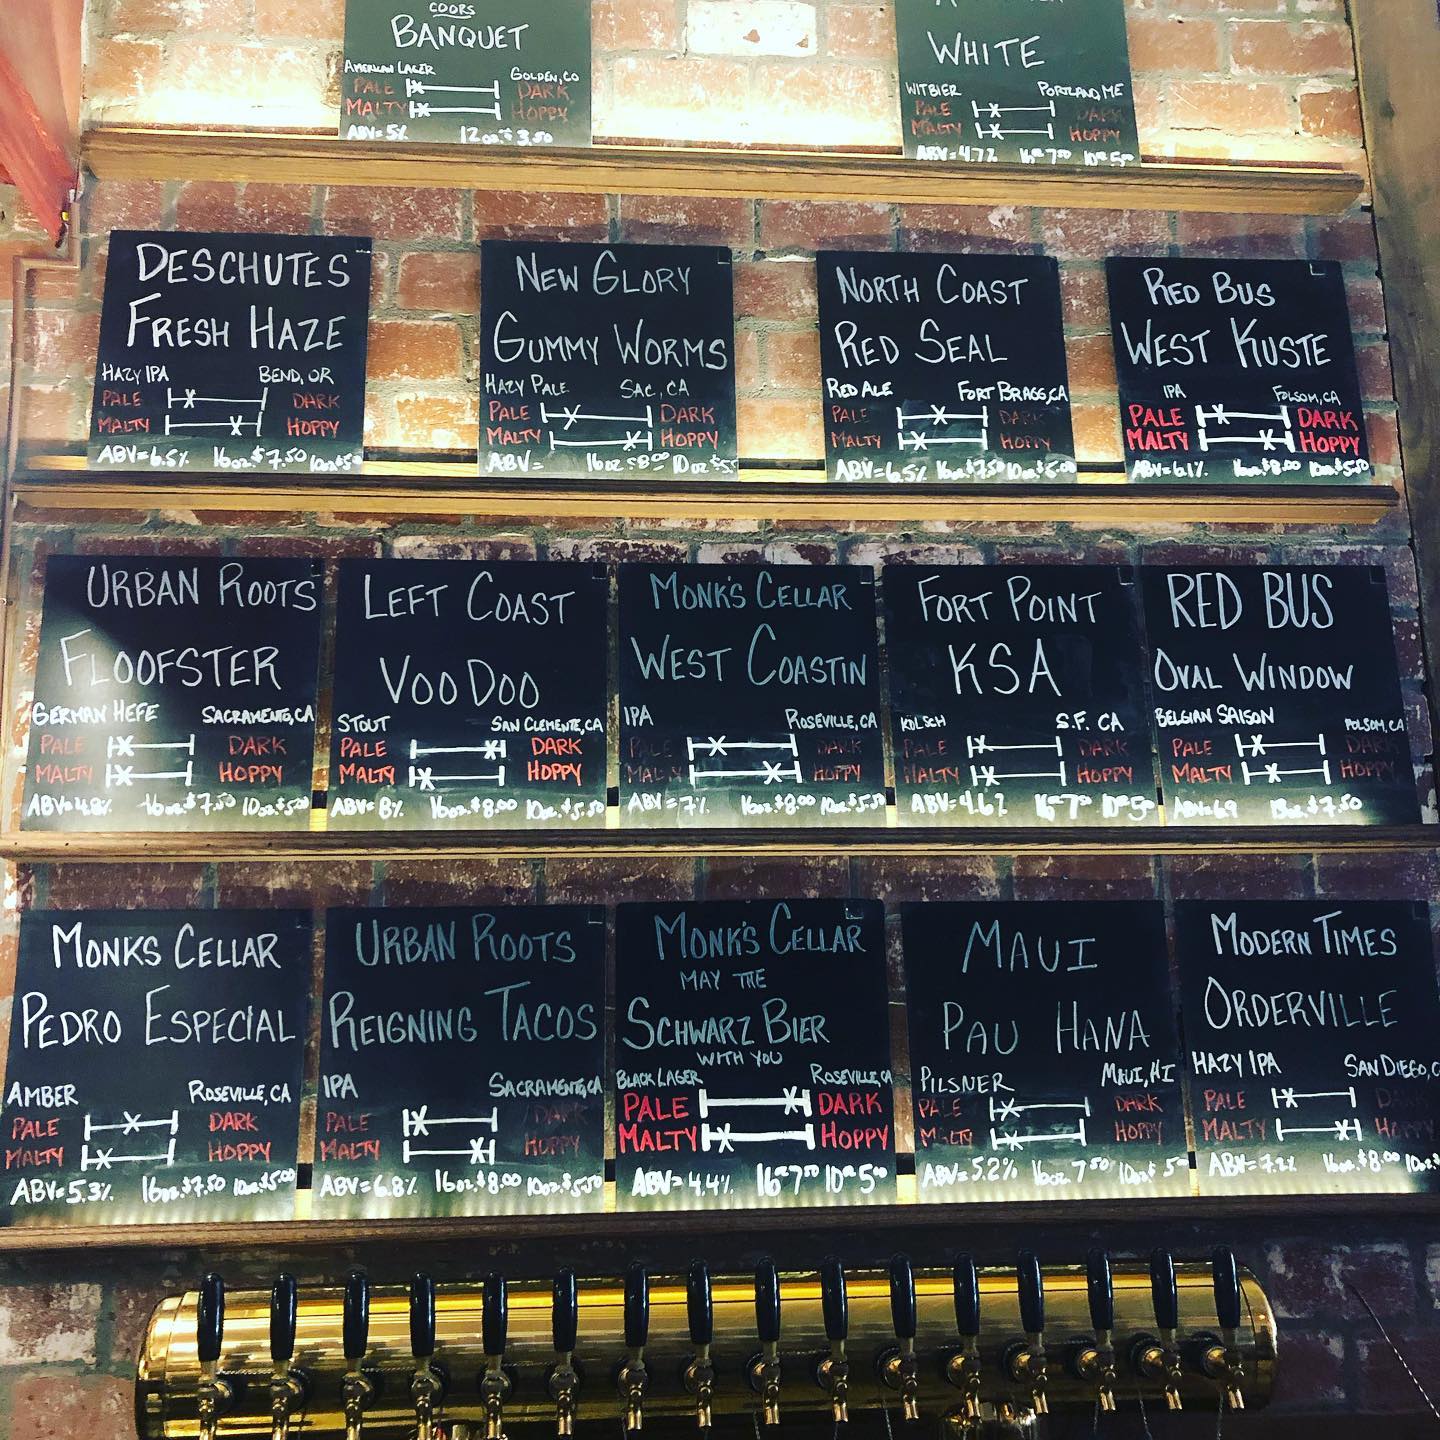 COORS
BANQUET
AMERICAN LAGER GOLDEN, CO
PALE DARK
MALTY HOPPY
ABV=5% 12oz $3.50
WHITE
WITBIER PORTLAND, ME
PALE DARK
MALTY HOPPY
ABV=4.7% 16oz 7.50 10oz 5.00
DESCHUTES
FRESH HAZE
HAZY IPA BEND, OR
PALE DARK
MALTY HOPPY
ABV=6.5% 16oz.$7.50 10oz $5.00
NEW GLORY
GUMMY WORMS
HAZY PALE SAC, CA
PALE DARK
MALTY HOPPY
ABV= 16oz $8.00 10oz $5.
NORTH COAST
RED SEAL
RED ALE FORT BRAGG, CA
PALE DARK
MALTY HOPPY
ABV=6.5% 16oz.$7.50 10oz $5.00
RED BUS
WEST KUSTE
IPA FOLSOM, CA
PALE DARK
MALTY HOPPY
ABV=6.1% 16oz.$8.00 10oz.$5.50
URBAN ROOTS
FLOOFSTER
GERMAN HEFE SACRAMENTO, CA
PALE DARK
MALTY HOPPY
ABV=4.8% 16oz.$7.50 10oz.$5.00
LEFT COAST
VOODOO
STOUT SAN CLEMENTE, CA
PALE DARK
MALTY HOPPY
ABV=8% 16oz.$8.00 10oz.$5.50
MONK'S CELLAR
WEST COASTIN
IPA ROSEVILLE, CA
PALE DARK
MALTY HOPPY
ABV=7% 16oz.$8.00 10oz.$5.50
FORT POINT
KSA
KOLSCH S.F. CA
PALE DARK
MALTY HOPPY
ABV=4.6% 16oz 7.50 10oz 5.00
RED BUS
OVAL WINDOW
BELGIAN SAISON FOLSOM, CA
PALE DARK
MALTY HOPPY
ABV=6.9 13oz.$7.50
MONKS CELLAR
PEDRO ESPECIAL
AMBER ROSEVILLE, CA
PALE DARK
MALTY HOPPY
ABV=5.3% 16oz.$7.50 10oz.$5.00
URBAN ROOTS
REIGNING TACOS
IPA SACRAMENTO, CA
PALE DARK
MALTY HOPPY
ABV=6.8% 16oz.$8.00 10oz.$5.50
MONK'S CELLAR
MAY THE
SCHWARZ BIER
WITH YOU
BLACK LAGER ROSEVILLE, CA
PALE DARK
MALTY HOPPY
ABV=4.4% 16oz 7.50 10oz 5.00
MAUI
PAU HANA
PILSNER MAUI, HI
PALE DARK
MALTY HOPPY
ABV=5.2% 16oz 7.50 10oz 5.00
MODERN TIMES
ORDERVILLE
HAZY IPA SAN DIEGO, C
PALE DARK
MALTY HOPPY
ABV=7.2% 16oz.$8.00 10oz.